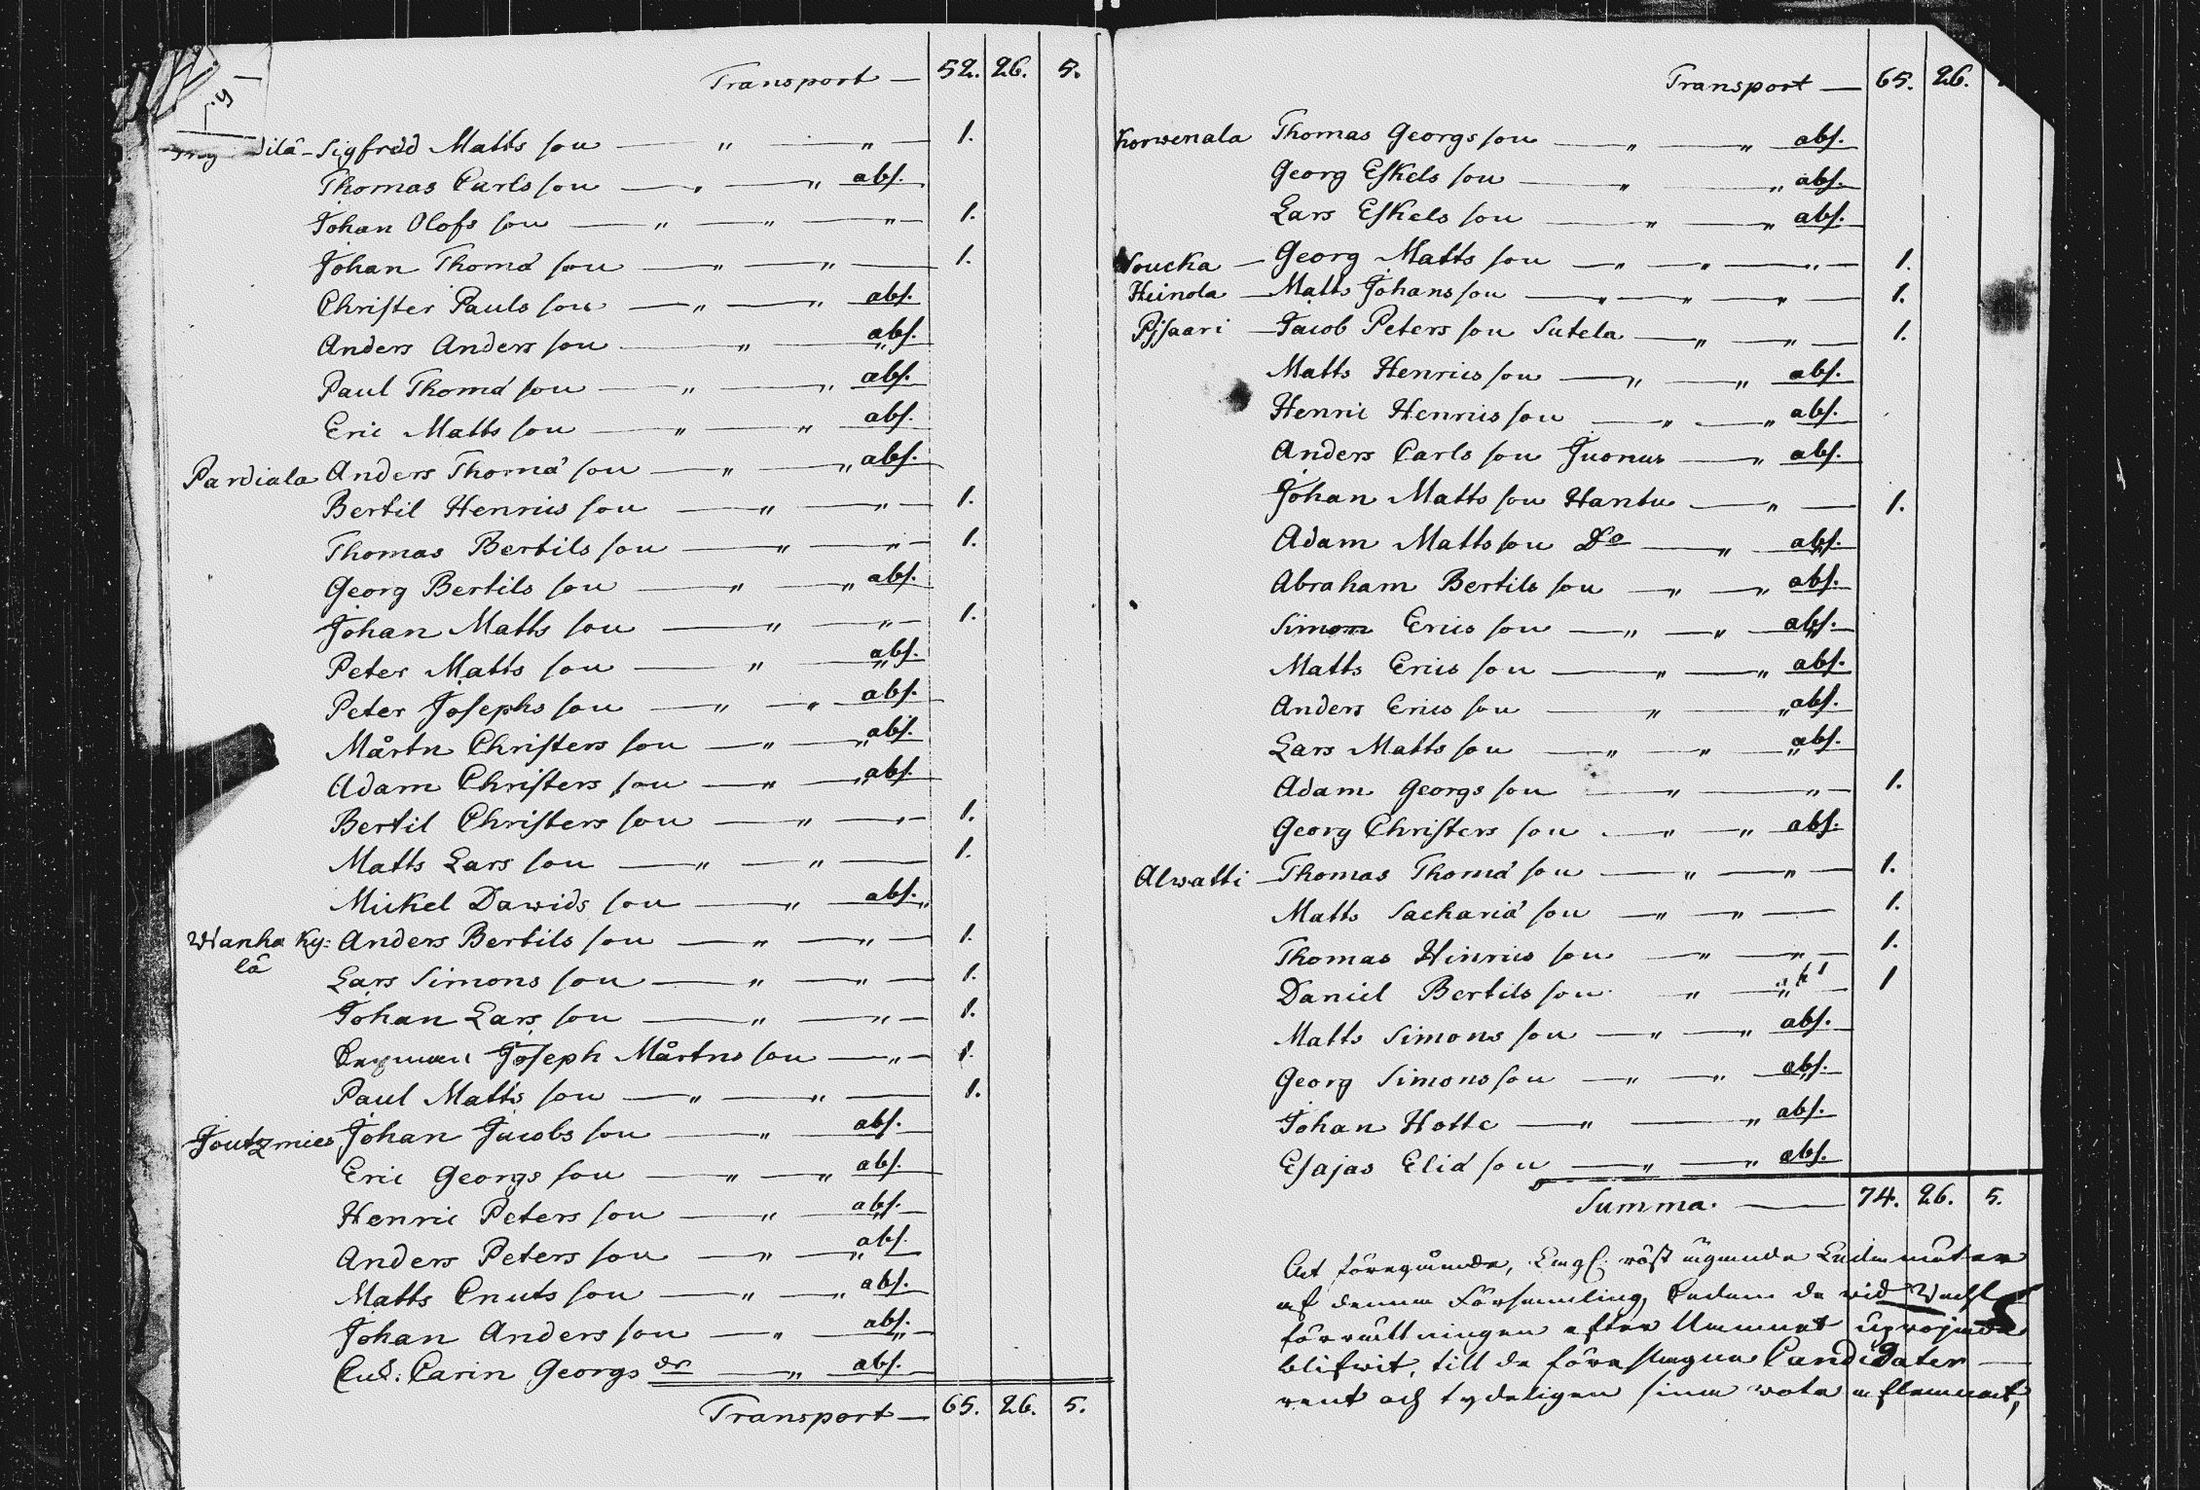 Transport — 52. 26. 5.
dilä - Sigfrid Matts son — " — " — 1.
Thomas Carls son — " — " abs.
Johan Olofs son — " — " — " — 1.
Johan Thomæ son — " — " — 1.
Christer Pauls son — " — " abs.
Anders Anders son — " — " abs.
Paul Thomæ son — " — " abs.
Eric Matts son — " — " abs.
Pardiala Anders Thomæ son — " — " abs.
Bertil Henrics son — " — " — 1.
Thomas Bertils son — " — " — 1.
Georg Bertils son — " — " abs.
Johan Matts son — " — " — 1.
Peter Matts son — " — " abs.
Peter Josephs son — " — " abs.
Mårtn Christers son — " — " abs.
Adam Christers son — " — " abs.
Bertil Christers son — " — " — 1.
Matts Lars son — " — " — 1.
Mickel Dawids son — " — abs. "
Wanha Ky: Anders Bertils son — " — " — 1.
lä
Lars Simons son — " — " — 1.
Johan Lars son — " — " — 1.
Joseph Mårtns son — " — 1.
Paul Matts son — " — " — 1.
Joutzmies Johan Jacobs son — " — abs.
Eric Georgs son — " — " abs.
Henric Peters son — " — " abs.
Anders Peters son — " — " abs.
Matts Cnuts son — " — " abs.
Johan Anders son — " — " abs.
Carin Georgs dr — " — abs.
Transport — 65. 26. 5.
Transport — 65. 26.
Korwenala Thomas Georgs son — " — " abs.
Georg Eskels son — " — " abs.
Lars Eskels son — " — " abs.
Noucka — Georg Matts son — " — " — " — 1.
Heinola — Matts Johans son — " — " — " — 1.
Pjsaari — Jacob Peters son Sutela — " — " — 1.
Matts Henrics son — " — " abs.
Henric Henrics son — " — " abs.
Anders Carls son Juonus — " abs.
Johan Matts son Hantu — " — 1.
Adam Matts son Do — " — abs.
Abraham Bertils son — " — " abs.
Simon Erics son — " — " abs.
Matts Erics son — " — " abs.
Anders Erics son — " — " abs.
Lars Matts son — " — " — " abs.
Adam Georgs son — " — " — 1.
Georg Christers son — " — " abs.
Alwatti — Thomas Thomæ son — " — " — 1.
Matts Sachariæ son — " — " — 1.
Thomas Hinrics son — " — " — 1.
Daniel Bertils son — " — " — 1
Matts Simons son — " — " abs.
Georg Simons son — " — " abs.
Johan Hotte — " — " abs.
Esajas Eliæ son — " — " abs.
Summa. — 74. 26. 5.
At föregående, röst ägande Ledamöter
af denna Församling, sedan de vid
förrättningen efter uprojade
blifwit, till de föreslagne Candidater —
rent och tydeligen sina vota aflemnat,